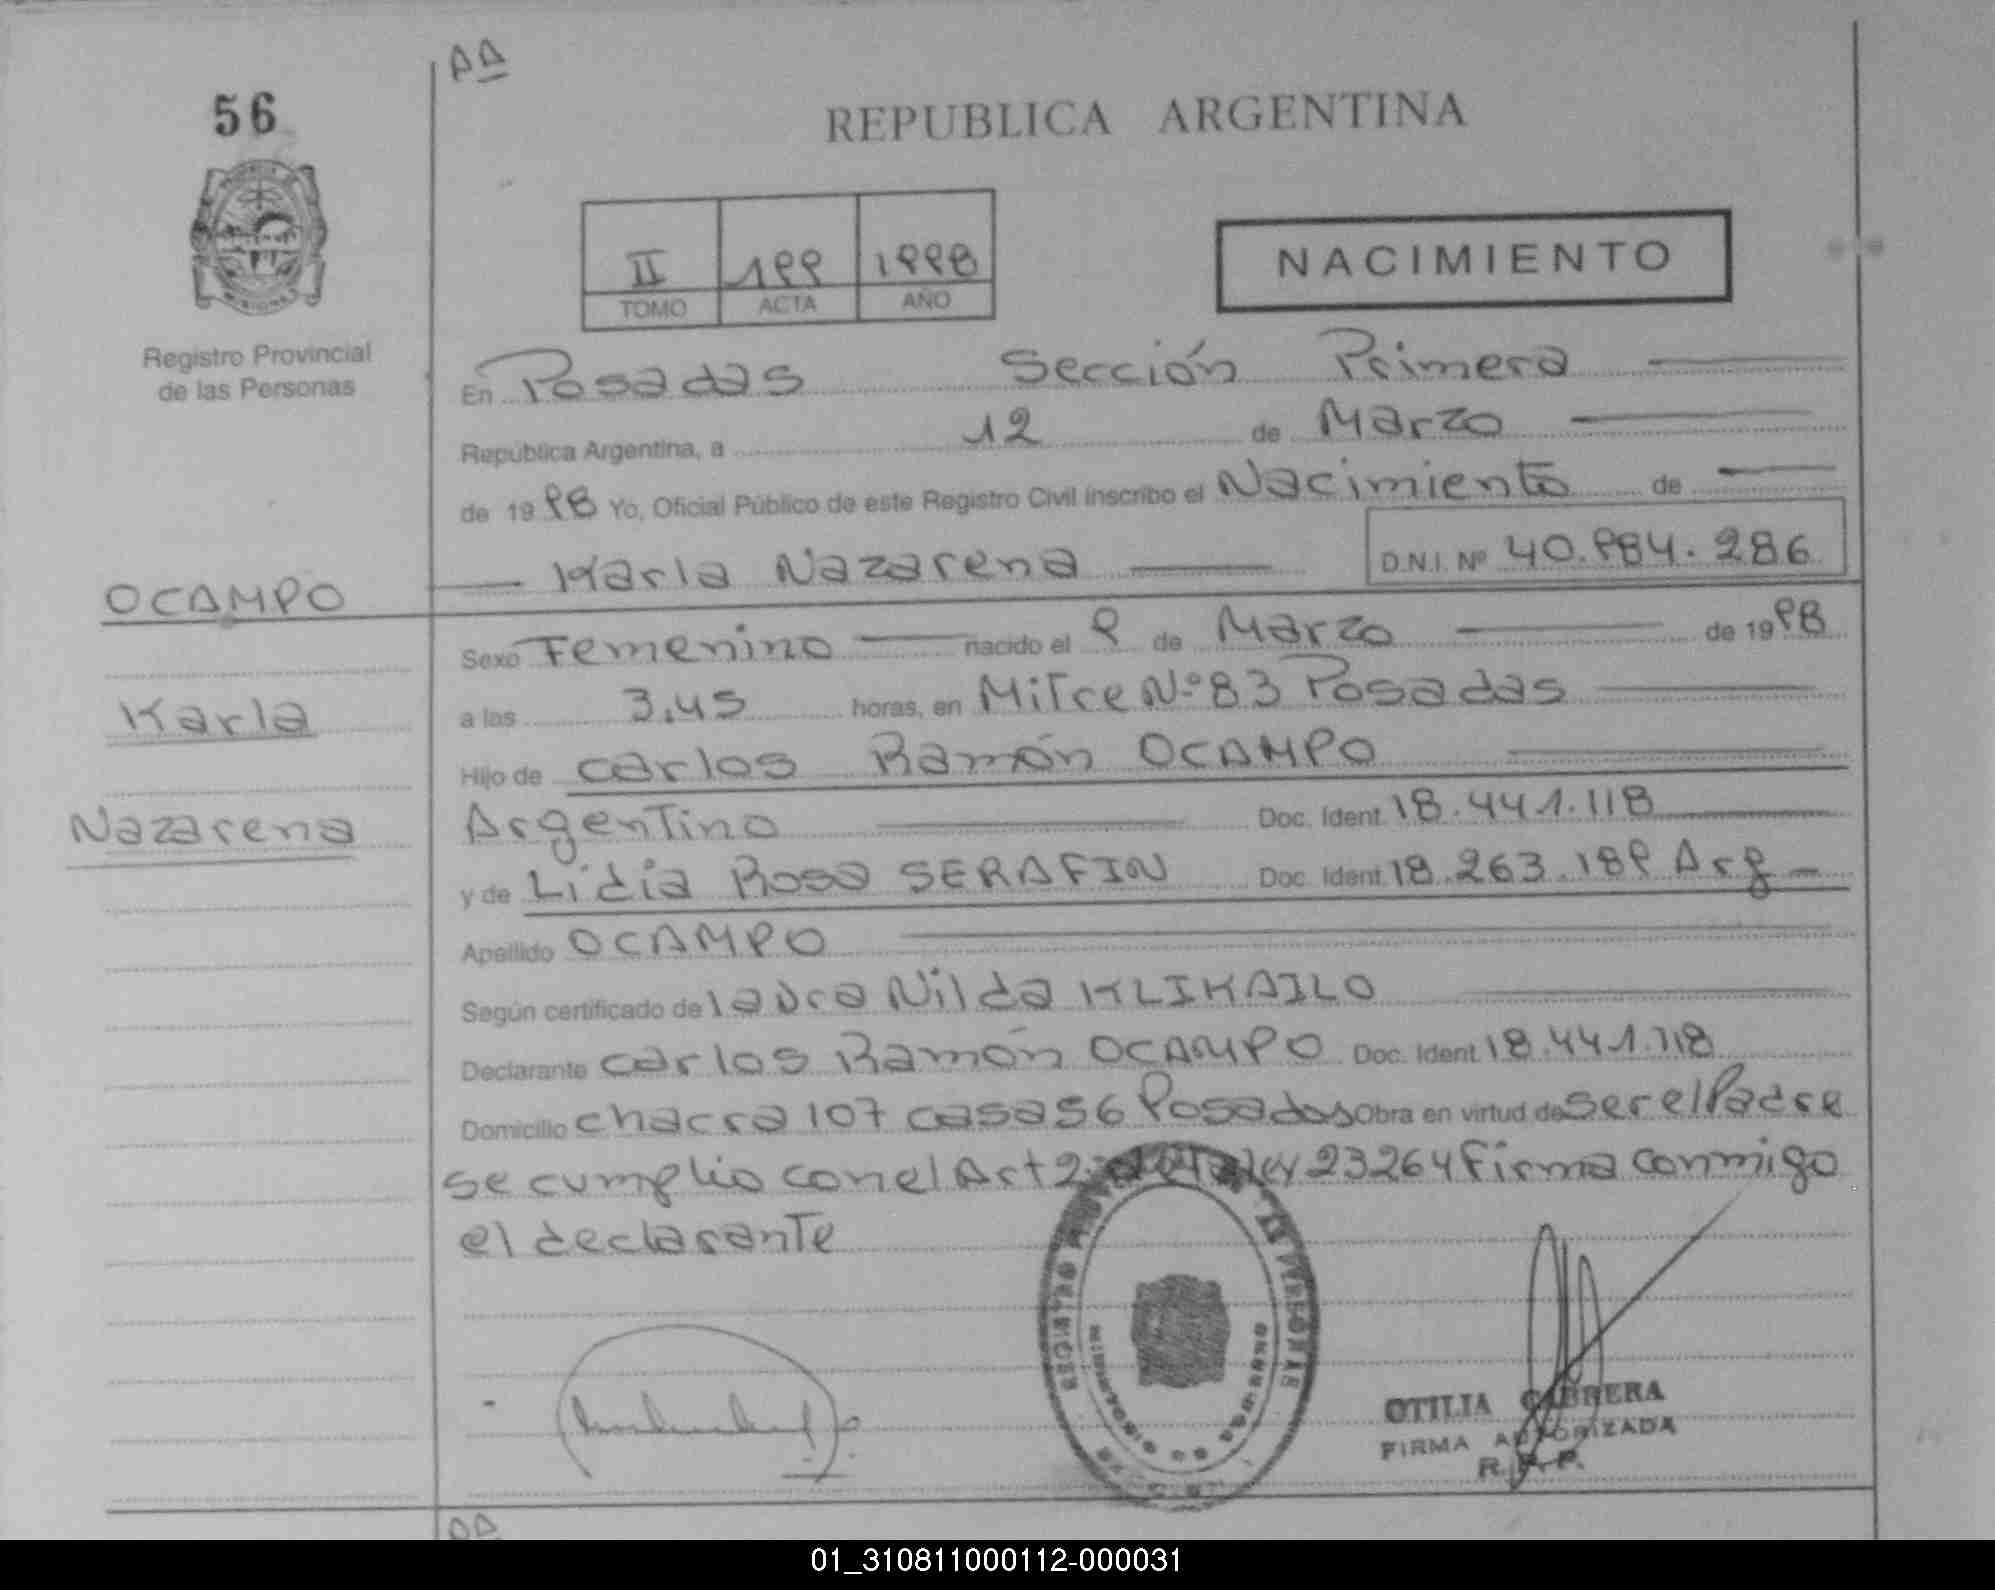 AA
56
REPUBLICA ARGENTINA
II 199 1998
TOMO ACTA AÑO
NACIMIENTO
Registro Provincial
de las Personas
En Posadas Sección Primera
República Argentina, a 12 de Marzo
de 1998 Yo, Oficial Público de este Registro Civil inscribo el Nacimiento de
Karla Nazarena D.N.I. Nº 40.984.286
OCAMPO
Karla
Nazarena
Sexo Femenino nacido el 9 de Marzo de 1998
a las 3,45 horas, en Mitre Nº 83 Posadas
Hijo de Carlos Ramón OCAMPO
Argentino Doc. Ident. 18.441.118
y de Lidia Rosa SERAFIN Doc. Ident. 18.263.189 Arg
Apellido OCAMPO
Según certificado de laura Nilda KLIKAILO
Declarante Carlos Ramón OCAMPO Doc. Ident. 18.441.118
Domicilio chacra 107 casa 56 Posadas Obra en virtud de ser el Padre
se cumplio con el Art 2 Ley 23264 Firma conmigo
el declarante
REGISTRO DE LAS PERSONAS
OTILIA CABRERA
FIRMA AUTORIZADA
R.P.P.
AA
01_310811000112-000031